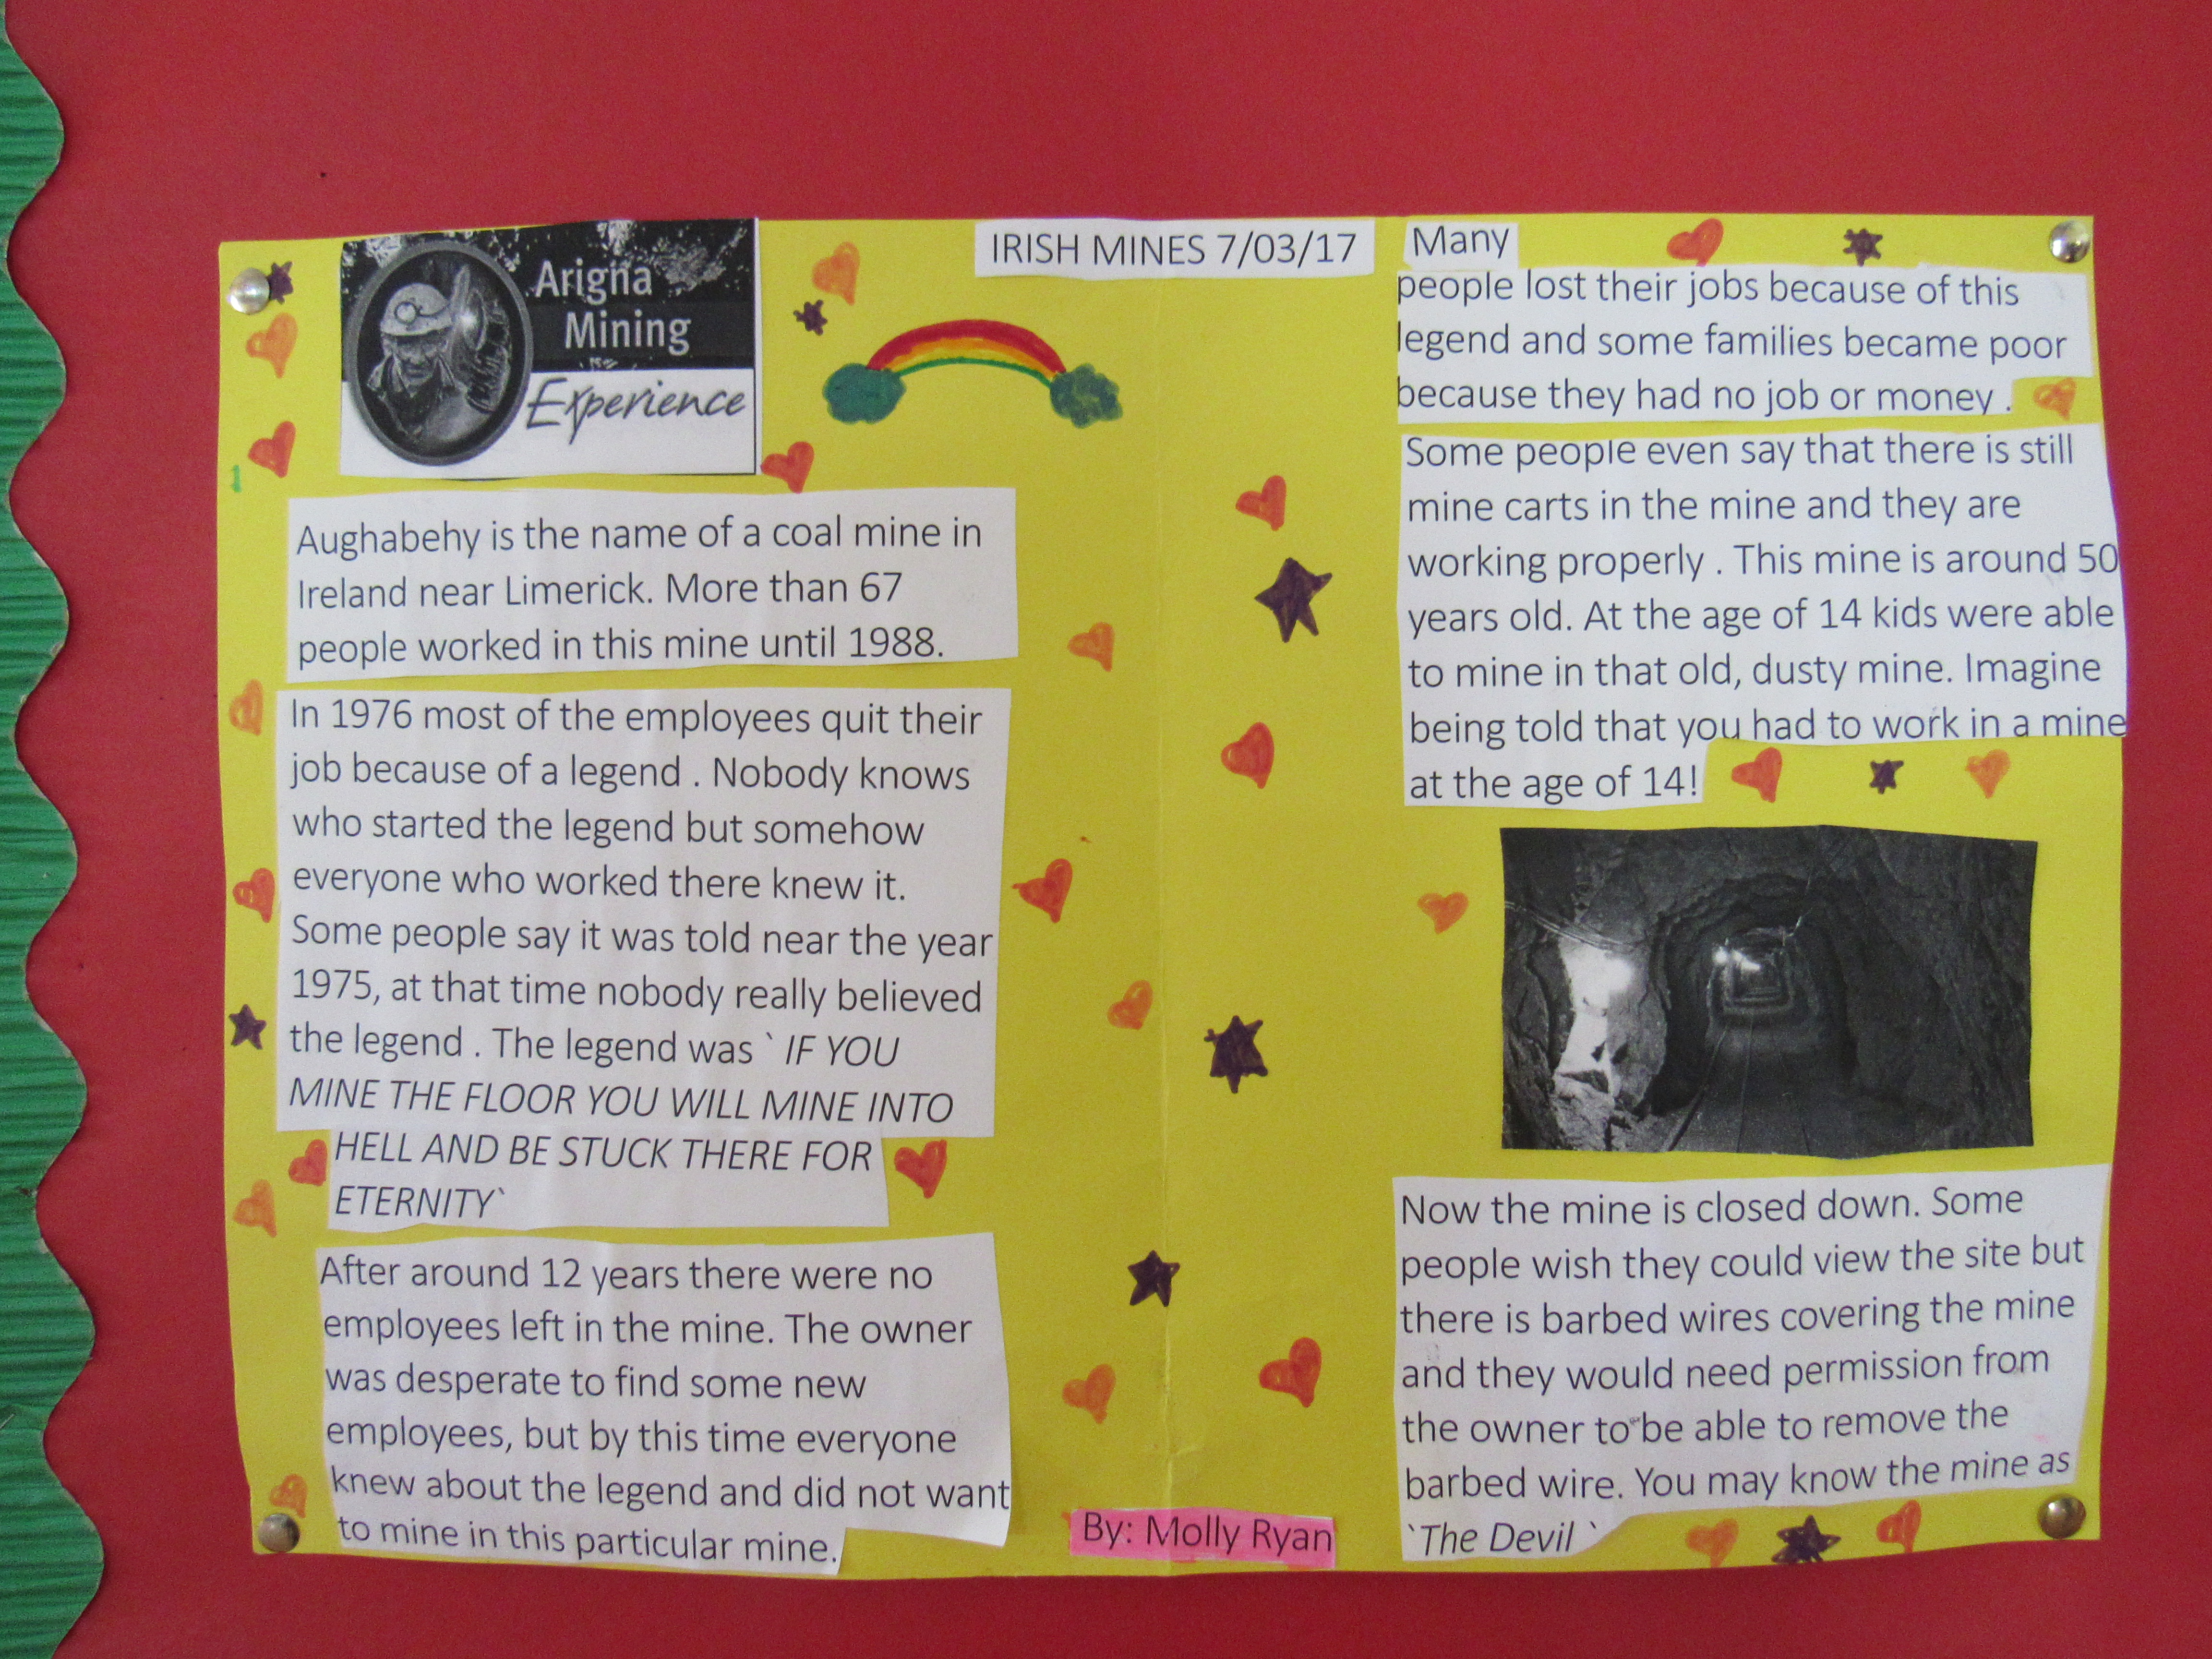 Arigna
Mining
Experience
IRISH MINES 7/03/17
1
Aughabehy is the name of a coal mine in
Ireland near Limerick. More than 67
people worked in this mine until 1988.
In 1976 most of the employees quit their
job because of a legend . Nobody knows
who started the legend but somehow
everyone who worked there knew it.
Some people say it was told near the year
1975, at that time nobody really believed
the legend . The legend was ` IF YOU
MINE THE FLOOR YOU WILL MINE INTO
HELL AND BE STUCK THERE FOR
ETERNITY`
After around 12 years there were no
employees left in the mine. The owner
was desperate to find some new
employees, but by this time everyone
knew about the legend and did not want
to mine in this particular mine.
Many
people lost their jobs because of this
legend and some families became poor
because they had no job or money .
Some people even say that there is still
mine carts in the mine and they are
working properly . This mine is around 50
years old. At the age of 14 kids were able
to mine in that old, dusty mine. Imagine
being told that you had to work in a mine
at the age of 14!
Now the mine is closed down. Some
people wish they could view the site but
there is barbed wires covering the mine
and they would need permission from
the owner to be able to remove the
barbed wire. You may know the mine as
`The Devil `
By: Molly Ryan